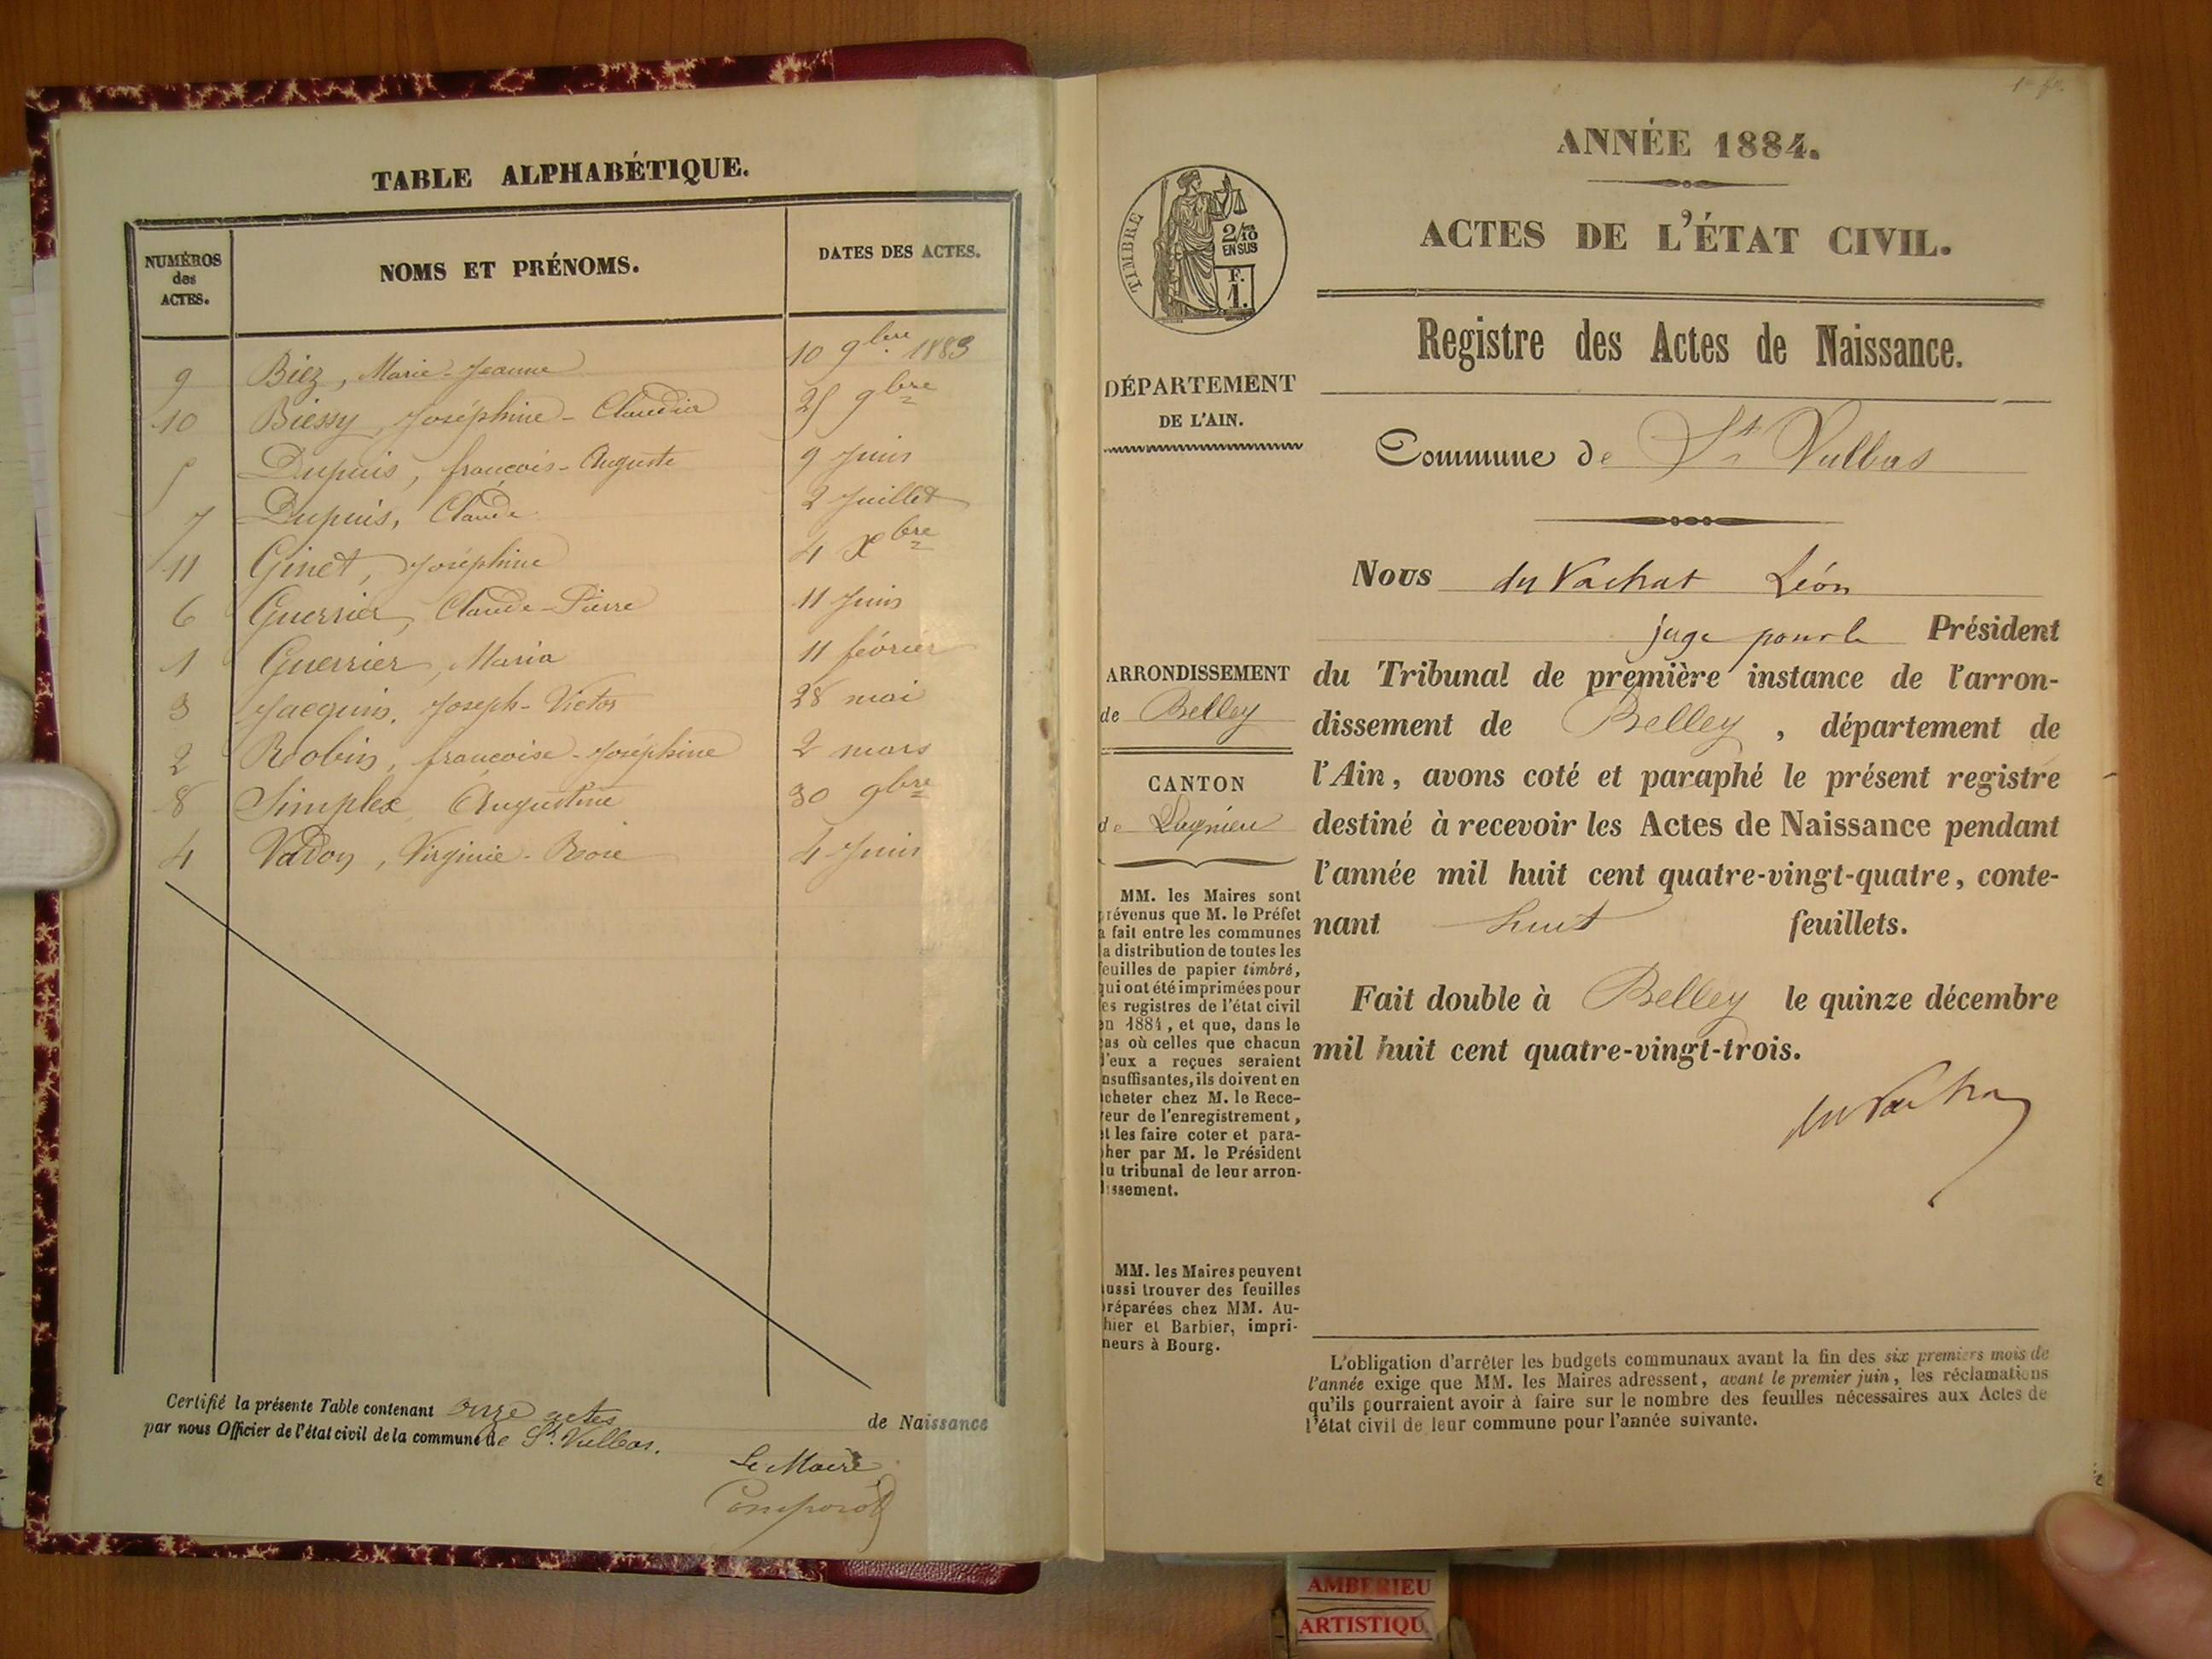 TABLE ALPHABÉTIQUE.
NUMÉROS des ACTES. NOMS ET PRÉNOMS. DATES DES ACTES.
9 Biez, Marie-Jeanne 10 9bre 1883
10 Biessy, Joséphine-Claudia 25 9bre
5 Dupuis, françois-Auguste 9 Juin
7 Dupuis, Claude 2 Juillet
11 Ginet, Joséphine 4 Xbre
6 Guerrier, Claude-Pierre 11 Juin
1 Guerrier, Maria 11 février
3 Jacquin, Joseph-Victor 28 mai
2 Robin, françoise-Joséphine 2 mars
8 Simplex Augustine 30 9bre
4 Vadon, Virginie-Rose 4 Juin
Certifié la présente Table contenant onze actes de Naissance
par nous Officier de l'état civil de la commune de St. Vulbas.
Le Maire
1er f.
ANNÉE 1884.
ACTES DE L'ÉTAT CIVIL.
TIMBRE
2/10
EN SUS
F.
1.
Registre des Actes de Naissance.
DÉPARTEMENT
DE L'AIN.
Commune de St Vulbas
Nous du Vachat Léon
juge pour le Président
ARRONDISSEMENT
de Belley
CANTON
de Lagnieu
du Tribunal de première instance de l'arron-
dissement de Belley, département de
l'Ain, avons coté et paraphé le présent registre
destiné à recevoir les Actes de Naissance pendant
l'année mil huit cent quatre-vingt-quatre, conte-
nant huit feuillets.
Fait double à Belley le quinze décembre
mil huit cent quatre-vingt-trois.
du Vachat
MM. les Maires sont
prévenus que M. le Préfet
a fait entre les communes
la distribution de toutes les
feuilles de papier timbré,
qui ont été imprimées pour
les registres de l'état civil
en 1884, et que, dans le
cas où celles que chacun
d'eux a reçues seraient
insuffisantes, ils doivent en
acheter chez M. le Rece-
veur de l'enregistrement,
et les faire coter et para-
pher par M. le Président
du tribunal de leur arron-
dissement.
MM. les Maires peuvent
aussi trouver des feuilles
préparées chez MM. Au-
thier et Barbier, impri-
meurs à Bourg.
L'obligation d'arrêter les budgets communaux avant la fin des six premiers mois de
l'année exige que MM. les Maires adressent, avant le premier juin, les réclamations
qu'ils pourraient avoir à faire sur le nombre des feuilles nécessaires aux Actes de
l'état civil de leur commune pour l'année suivante.
AMBERIEU
ARTISTIQU